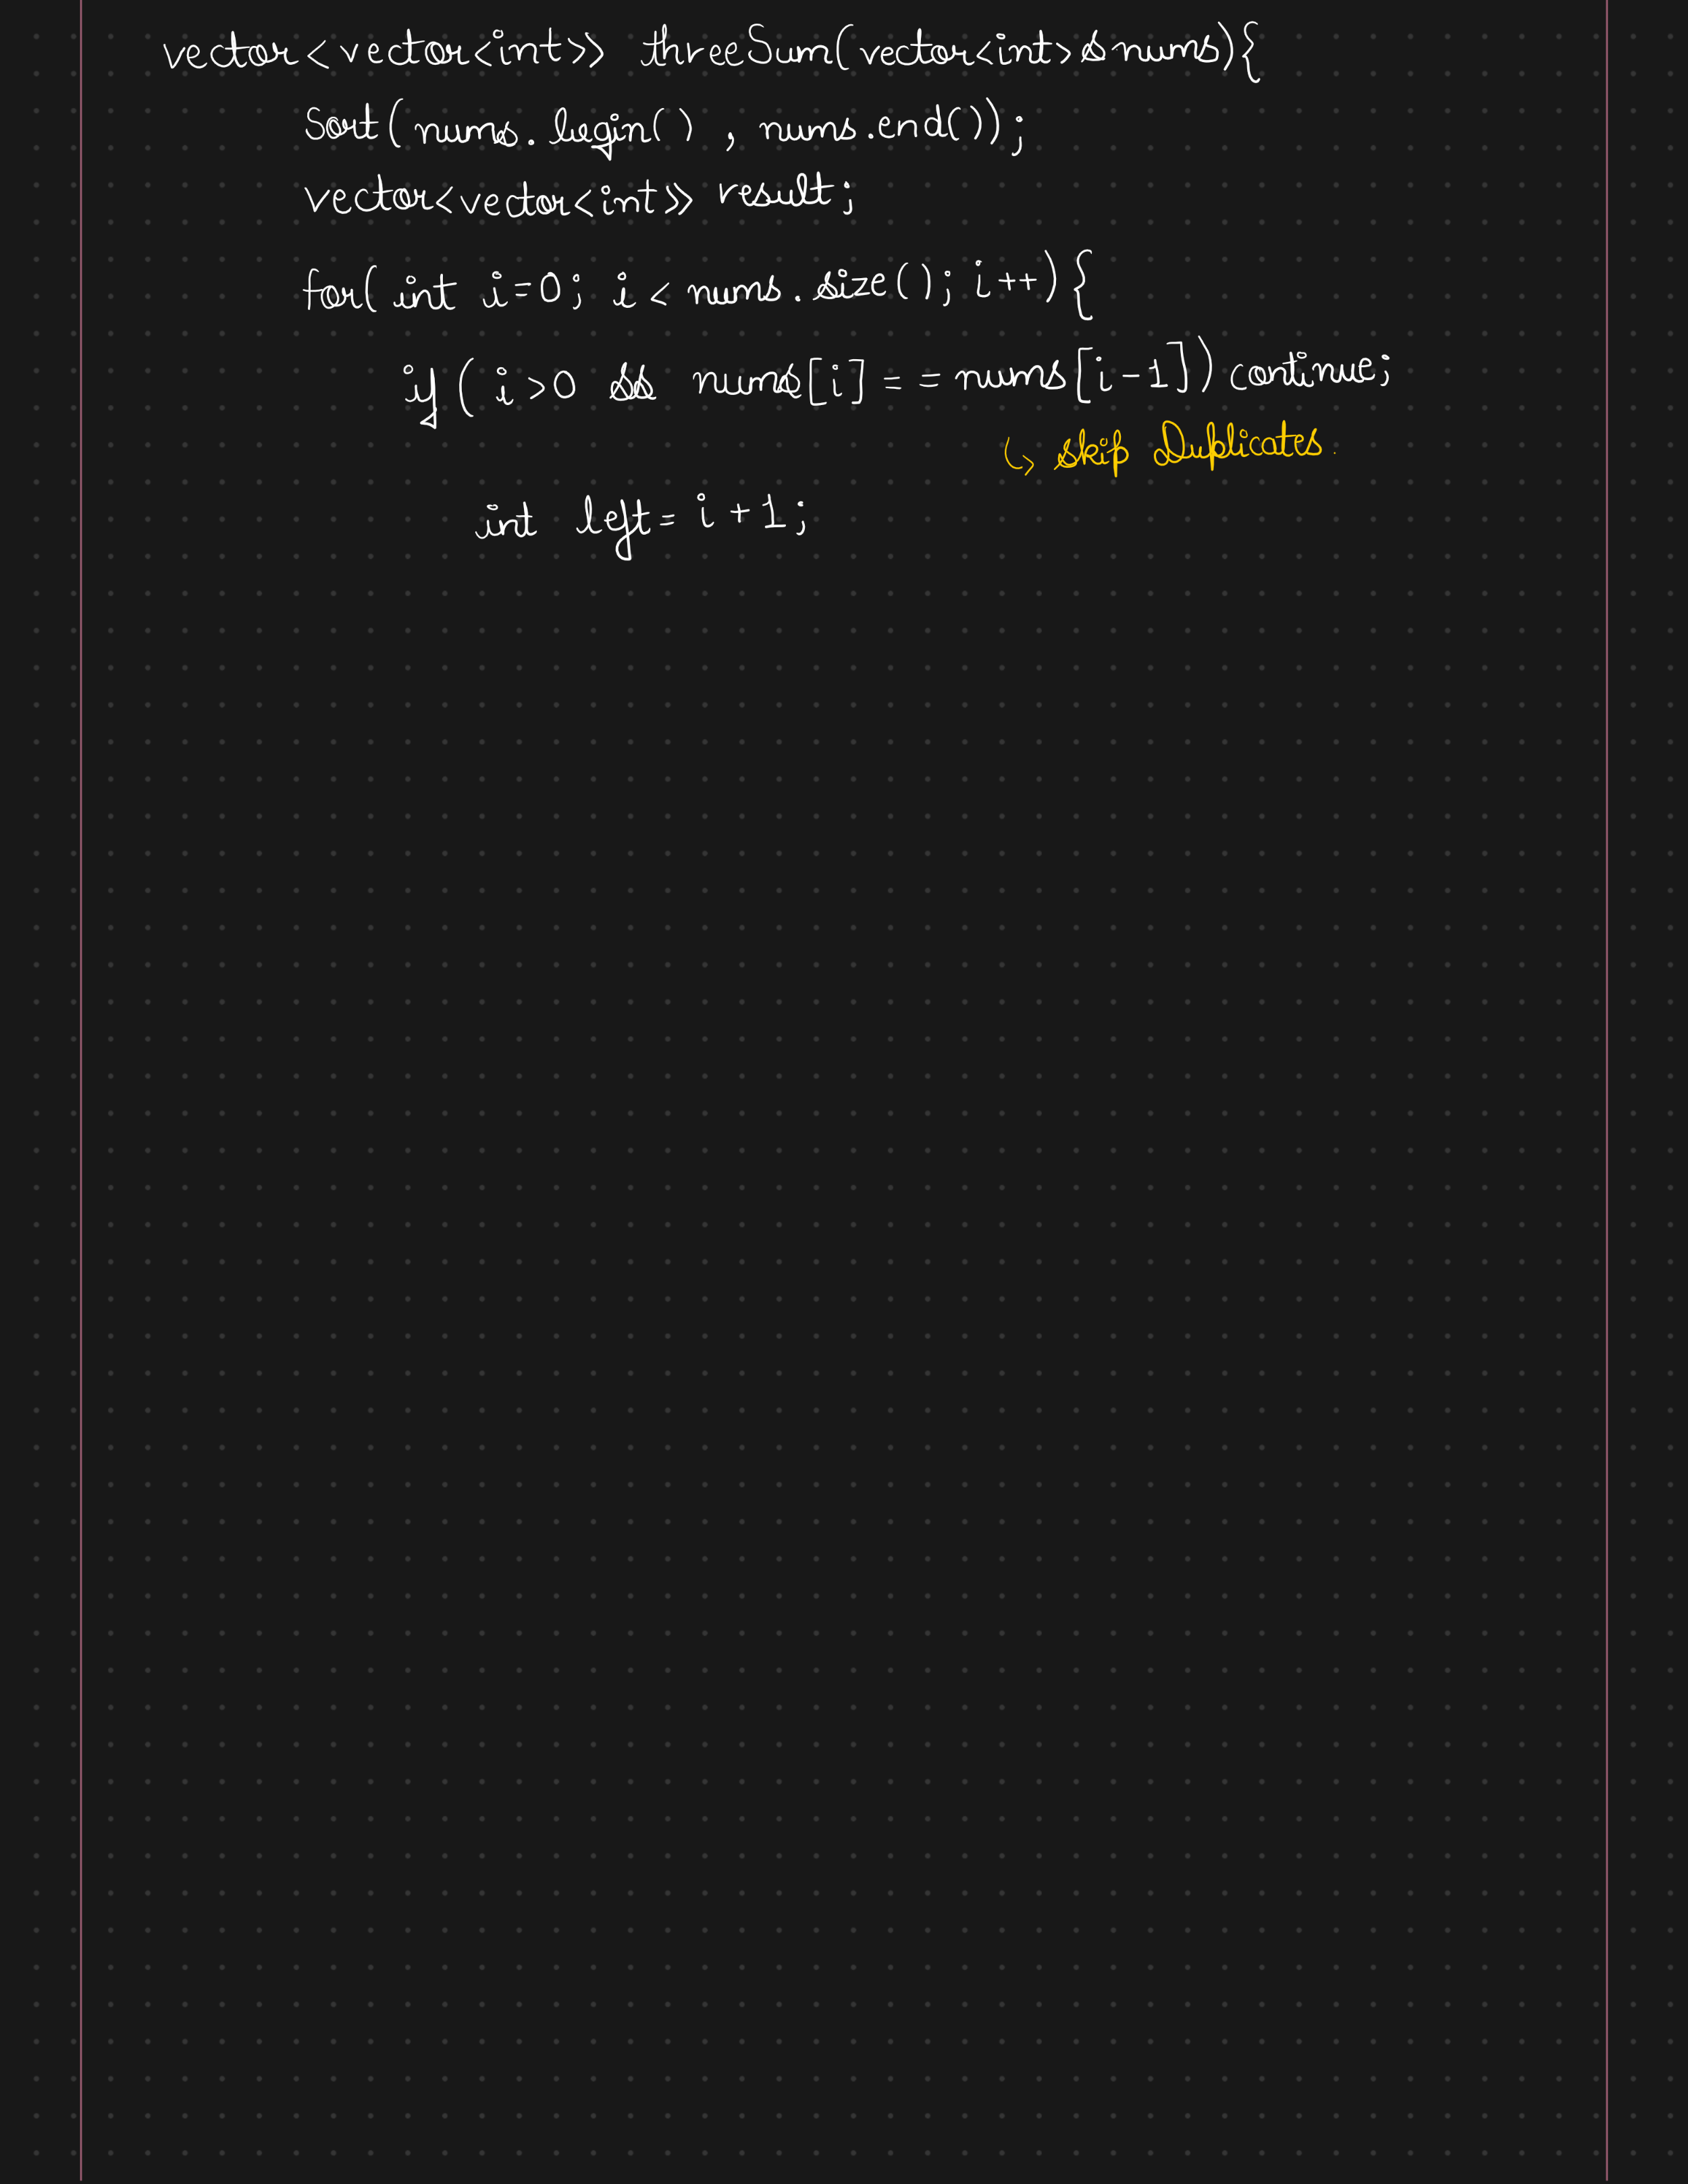 vector<vector<int>> threeSum(vector<int>&nums){
Sort(nums.begin(), nums.end());
vector<vector<int>> result;
for(int i=0; i < nums.size(); i++){
if(i>0 && nums[i] == nums[i-1]) continue;
↳ skip Duplicates.
int left = i+1;